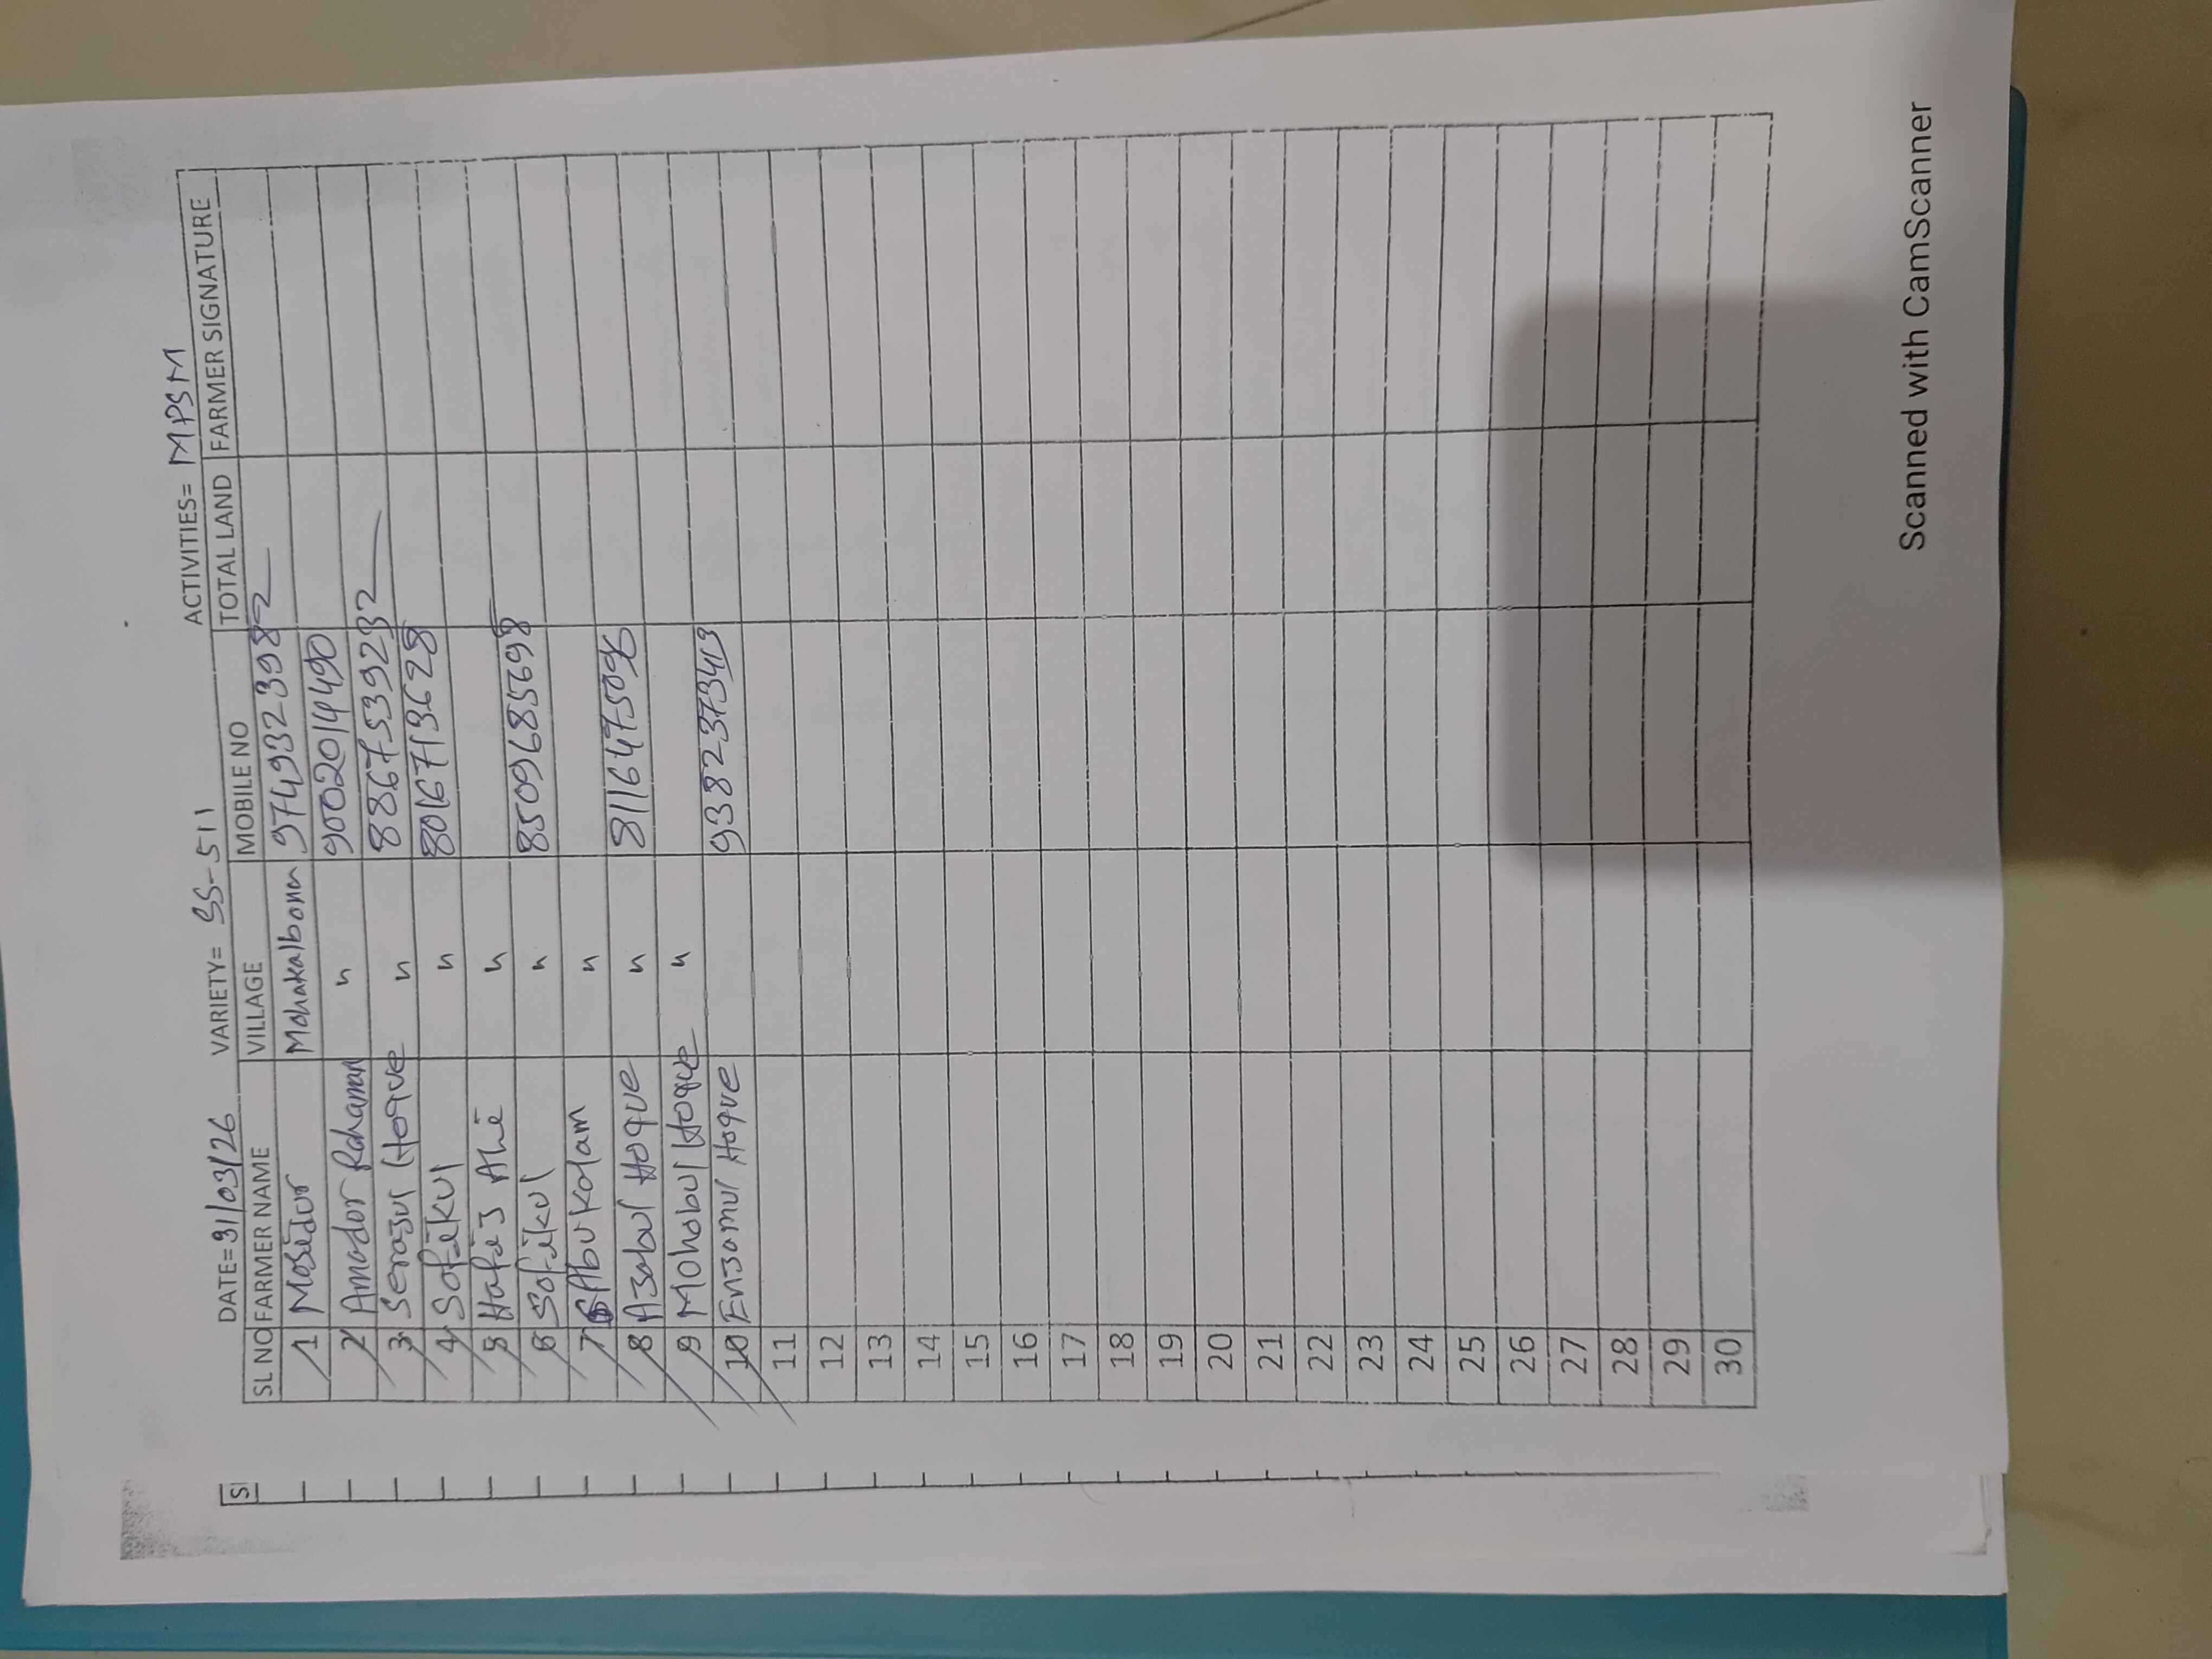 DATE= 31/03/26 VARIETY= SS-511 ACTIVITIES= MPSM
SL NO FARMER NAME VILLAGE MOBILE NO TOTAL LAND FARMER SIGNATURE
1 Mosidur Mahakalbona 9749323982
2 Amador Rahaman " 9002014490
3 Serajul Hoque " 8867539232
4 Sofikul " 8016713628
5 Hafij Ali "
6 Sofikul " 8509685698
7 Abu Kalam "
8 Azabul Hoque " 8116475096
9 Mohobul Hoque "
10 Enjamul Hoque 9382373419
11
12
13
14
15
16
17
18
19
20
21
22
23
24
25
26
27
28
29
30
S
Scanned with CamScanner